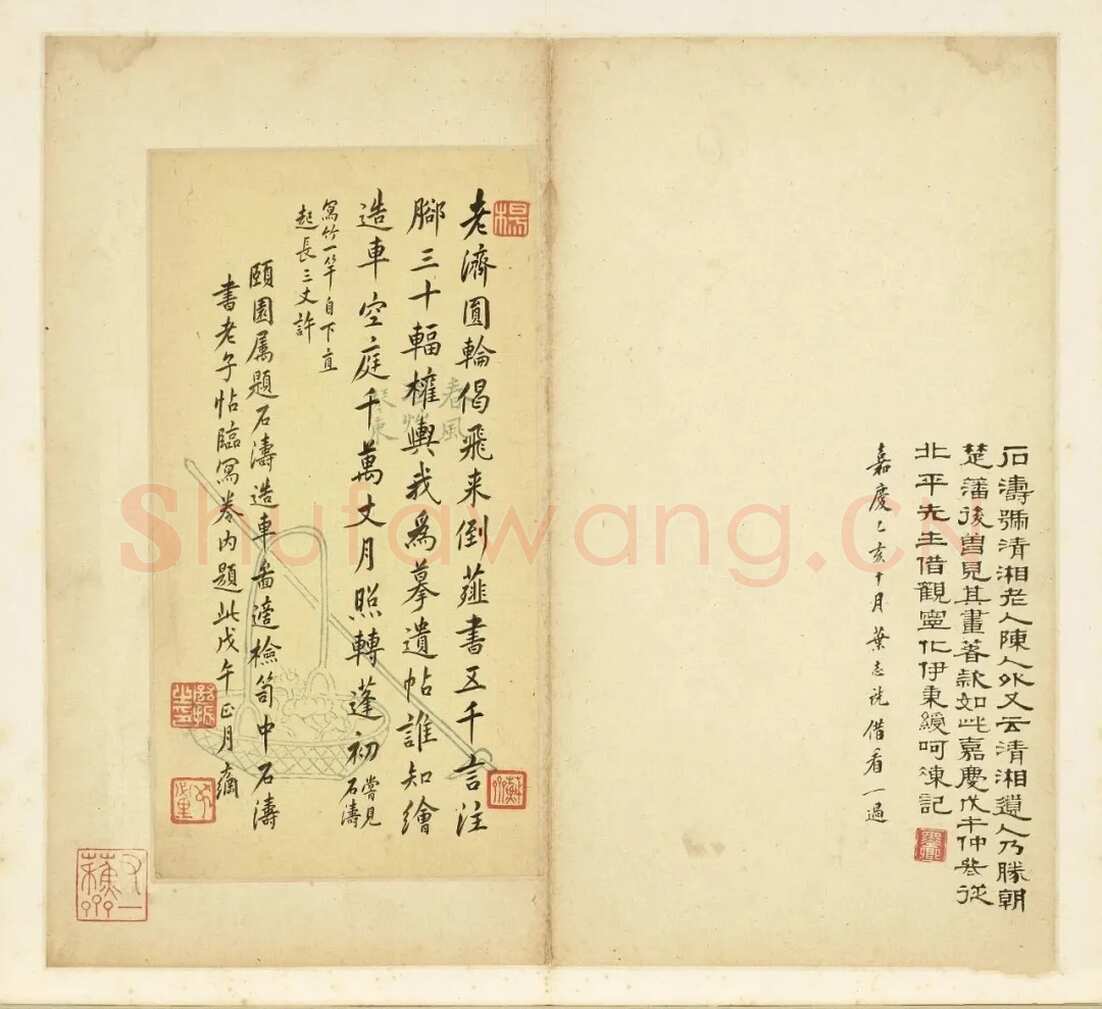 石濤號清湘老人陳人外又云清湘遺人乃勝朝
楚藩後曾見其畫著款如此嘉慶戊午仲冬從
北平先生借觀寧化伊秉綬呵凍記
嘉慶乙亥十月葉志詵借看一過
老濟圓輪偈飛来倒薤書五千言注
腳三十輻權輿我為摹遺帖誰知繪
造車空庭千萬丈月照轉蓬初
嘗見石濤
寫竹一竿自下直
起長三丈許
頤園屬題石濤造車圖適檢笥中石濤
書老子帖臨寫卷內題此戊午正月
春風
Shufawang.CN